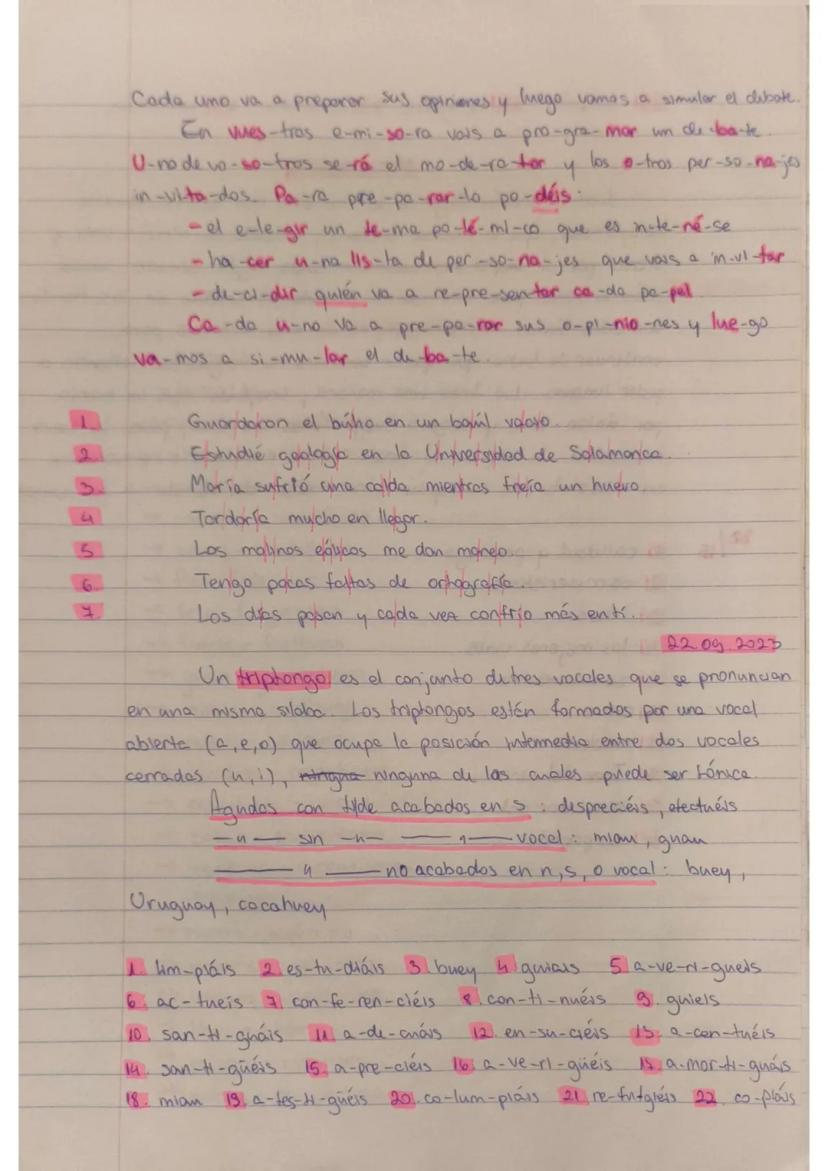 Cada uno va a preparar sus opiniones y luego vamos a simular el debate.
En vues-tras e-mi-so-ra vais a pro-gra-mar un de-ba-te.
U-no de vo-so-tros se-rá el mo-de-ra-tor y los o-tros per-so-na-jes
in-vi-ta-dos. Pa-ra pre-pa-rar-lo po-déis:
- el e-le-gir un te-ma po-lé-mi-co que es in-te-né-se
- ha-cer u-na lis-ta de per-so-na-jes que vais a in-vi-tar
- de-ci-dir quién va a re-pre-sen-tar ca-da pa-pel
Ca-da u-no va a pre-pa-rar sus o-pi-nio-nes y lue-go
va-mos a si-mu-lar el de-ba-te.
1. Guardaron el búho en un baúl vacío.
2. Estudié geología en la Universidad de Salamanca.
3. María sufrió una caída mientras freía un huevo.
4. Tardaría mucho en llegar.
5. Los molinos eólicos me dan mareo.
6. Tengo pocas faltas de ortografía.
7. Los días pasan y cada vez confrío más en tí.
22.09.2023
Un triptongo es el conjunto de tres vocales que se pronuncian
en una misma sílaba. Los triptongos están formados por una vocal
abierta (a,e,o) que ocupa la posición intermedia entre dos vocales
cerradas (u,i), ninguna de las cuales puede ser tónica.
Agudos con tylde acabados en s: despreciéis, efectuéis
—u— sin —n— —— 1 —— vocal: miau, guau
—— 4 —— no acabados en n,s, o vocal: buey,
Uruguay, cocahuey
1. lim-piáis 2. es-tu-diáis 3. buey 4. guiais 5. a-ve-ri-gueis
6. ac-tueis 7. con-fe-ren-ciéis 8. con-ti-nuéis 9. guieis
10. san-ti-guáis 11. a-de-cuáis 12. en-su-ciéis 13. a-cen-tuéis
14. san-ti-güéis 15. a-pre-ciéis 16. a-ve-ri-güéis 17. a-mor-ti-guáis
18. miau 19. a-tes-ti-güéis 20. co-lum-piáis 21. re-fu-giéis 22. co-piáis